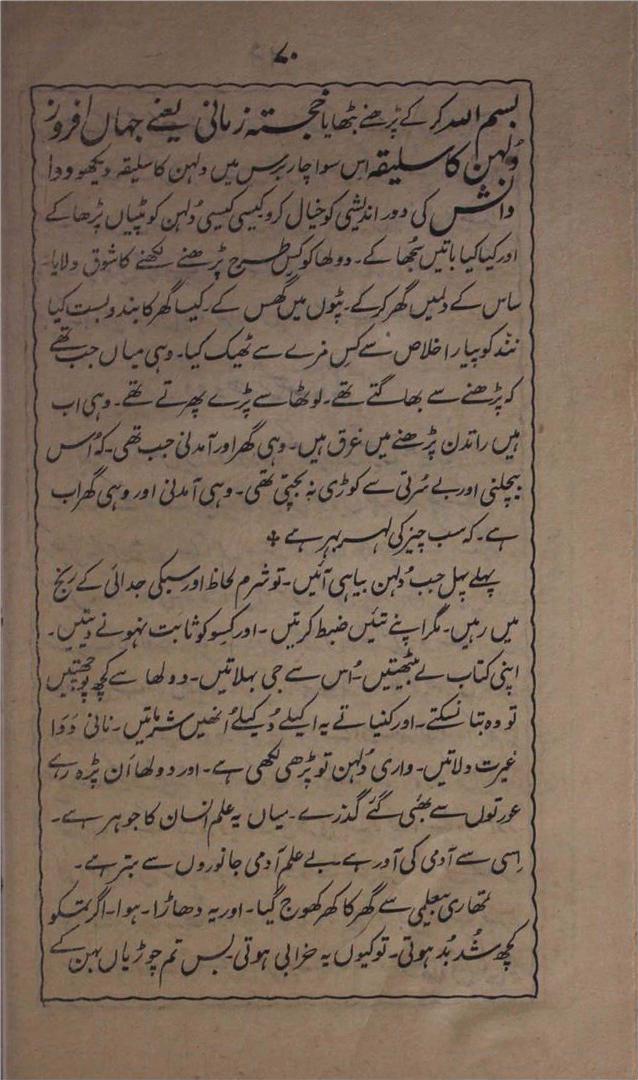 ۷۰
بسم اللہ کر کے پڑھنے بٹھایا خجستہ زمانی یعنے جہاں افروز
دُلہن کا سلیقہ اس سوا چار برس میں دلہن کا سلیقہ دیکھو ودا
دانش کی دور اندیشی کو خیال کرو کیسی کیسی دُلہن کو پٹیاں پڑھا کے
اور کیا کیا باتیں سُجھا کے۔ دولھا کو کس طرح پڑھنے لکھنے کا شوق دلایا۔
ساس کے دلمیں گھر کر کے۔ پٹوں میں گھس کے۔ کیسا گھر کا بندوبست کیا
نند کو پیار اخلاص سے کس مزے سے ٹھیک کیا۔ وہی میاں جب تھے
کہ پڑھنے سے بھاگتے تھے۔ لوٹھا سے پڑے پھرتے تھے۔ وہی اب
ہیں راتدن پڑھنے میں غرق ہیں۔ وہی گھر اور آمدنی جب تھی۔ کہ اُس
بیچلنی اور بے سُرتی سے کوڑی نہ بچتی تھی۔ وہی آمدنی اور وہی گھر اب
ہے۔ کہ سب چیز کی لہر بہر ہے ❖
پہلے پہل جب دُلہن بیاہی آئیں۔ تو شرم لحاظ اور سبکی جدائی کے رنج
میں رہیں۔ مگر اپنے تئیں ضبط کرتیں۔ اور کسو کو ثابت نہونے دیتیں۔
اپنی کتاب لے بیٹھتیں۔ اُس سے جی بہلاتیں۔ دولھا سے کچھ پوچھتیں
تو وہ بتا نسکتے۔ اور کنیاتے یہ اکیلے دُکیلے اُنھیں شرماتیں۔ نانی دَدَا
غیرت دلاتیں۔ واری دُلہن تو پڑھی لکھی ہے۔ اور دولھا اَن پڑہ رہے
عورتوں سے بھی گئے گذرے۔ میاں یہ علم انسان کا جوہر ہے۔
اِسی سے آدمی کی آدر ہے بے علم آدمی جانوروں سے بتر ہے۔
تمھاری بیعلمی سے گھر کا کھر کھوج گیا۔ اور یہ دھاڑا۔ ہوا۔ اگر تمکو
کچھ شُد بُد ہوتی۔ تو کیوں یہ خرابی ہوتی۔ بس تم چوڑیاں پہن کے